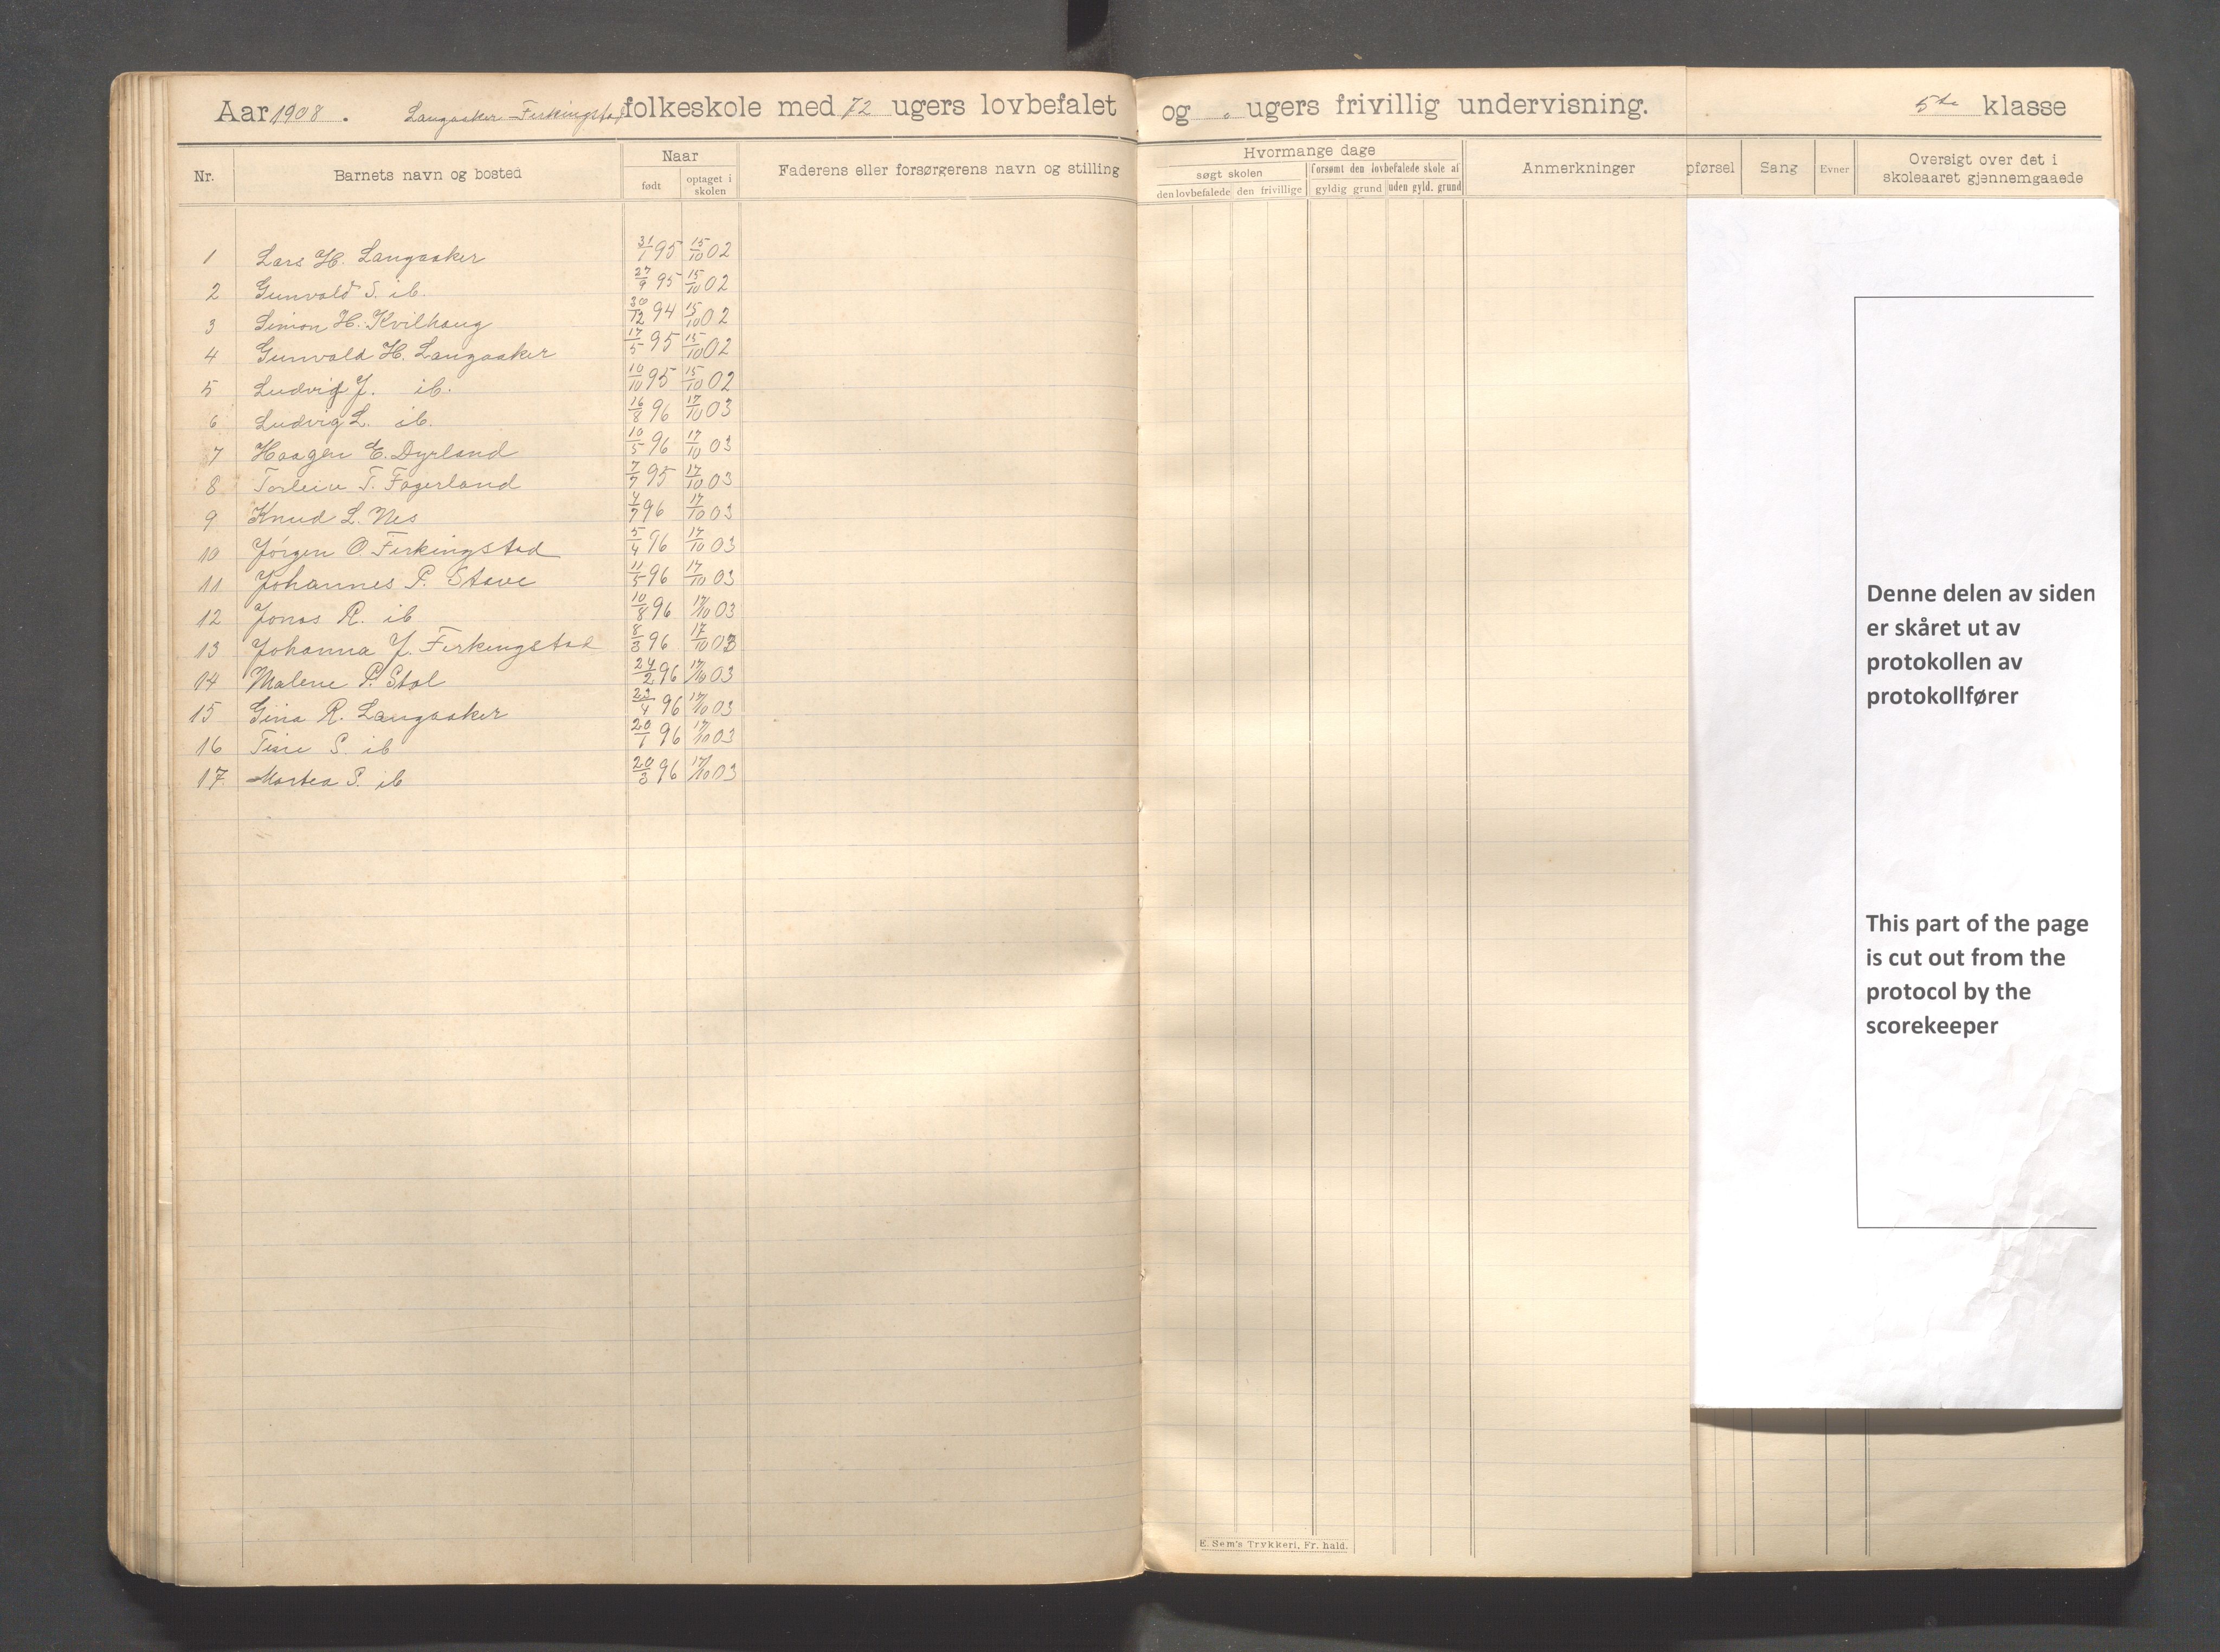 Aar 1908. Langaaker-Ferkingstad folkeskole med 72 ugers lovbefalet og ugers frivillig undervisning. 5te klasse
Nr. Barnets navn og bosted Naar født optaget i skolen Faderens eller forsørgerens navn og stilling
Hvormange dage søgt skolen den lovbefalede den frivillige forsømt den lovbefalede skole af gyldig grund uden gyld. grund Anmerkninger
pførsel Sang Evner Oversigt over det i skoleaaret gjennemgaaede
1 Lars H. Langaaker 31/1 95 15/10 02
2 Gunvald S. ib. 27/9 95 15/10 02
3 Simon H. Kvilhaug 30/12 94 15/10 02
4 Gunvald H. Langaaker 17/5 95 15/10 02
5 Ludvig J. ib. 10/10 95 15/10 02
6 Ludvig L. ib. 16/8 96 17/10 03
7 Haagen E. Dyrland 10/5 96 17/10 03
8 Torleiv T. Fagerland 7/7 95 17/10 03
9 Knud L. Nes 4/7 96 17/10 03
10 Jørgen O. Ferkingstad 5/4 96 17/10 03
11 Johannes P. Stave 11/5 96 17/10 03
12 Jonas R. ib 10/8 96 17/10 03
13 Johanna J. Ferkingstad 8/3 96 17/10 03
14 Malene P. Stol 24/2 96 17/10 03
15 Gina R. Langaaker 23/4 96 17/10 03
16 Tine S. ib 20/1 96 17/10 03
17 Martea S. ib 20/3 96 17/10 03
Denne delen av siden
er skåret ut av
protokollen av
protokollfører
This part of the page
is cut out from the
protocol by the
scorekeeper
E. Sem's Trykkeri, Fr. hald.